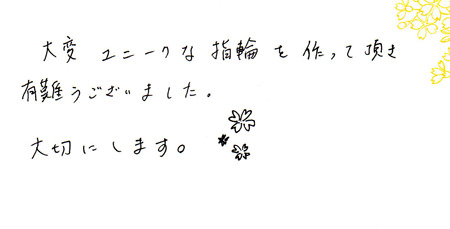 大変 ユニークな 指輪 を 作って頂き
有難うございました。
大切にします。